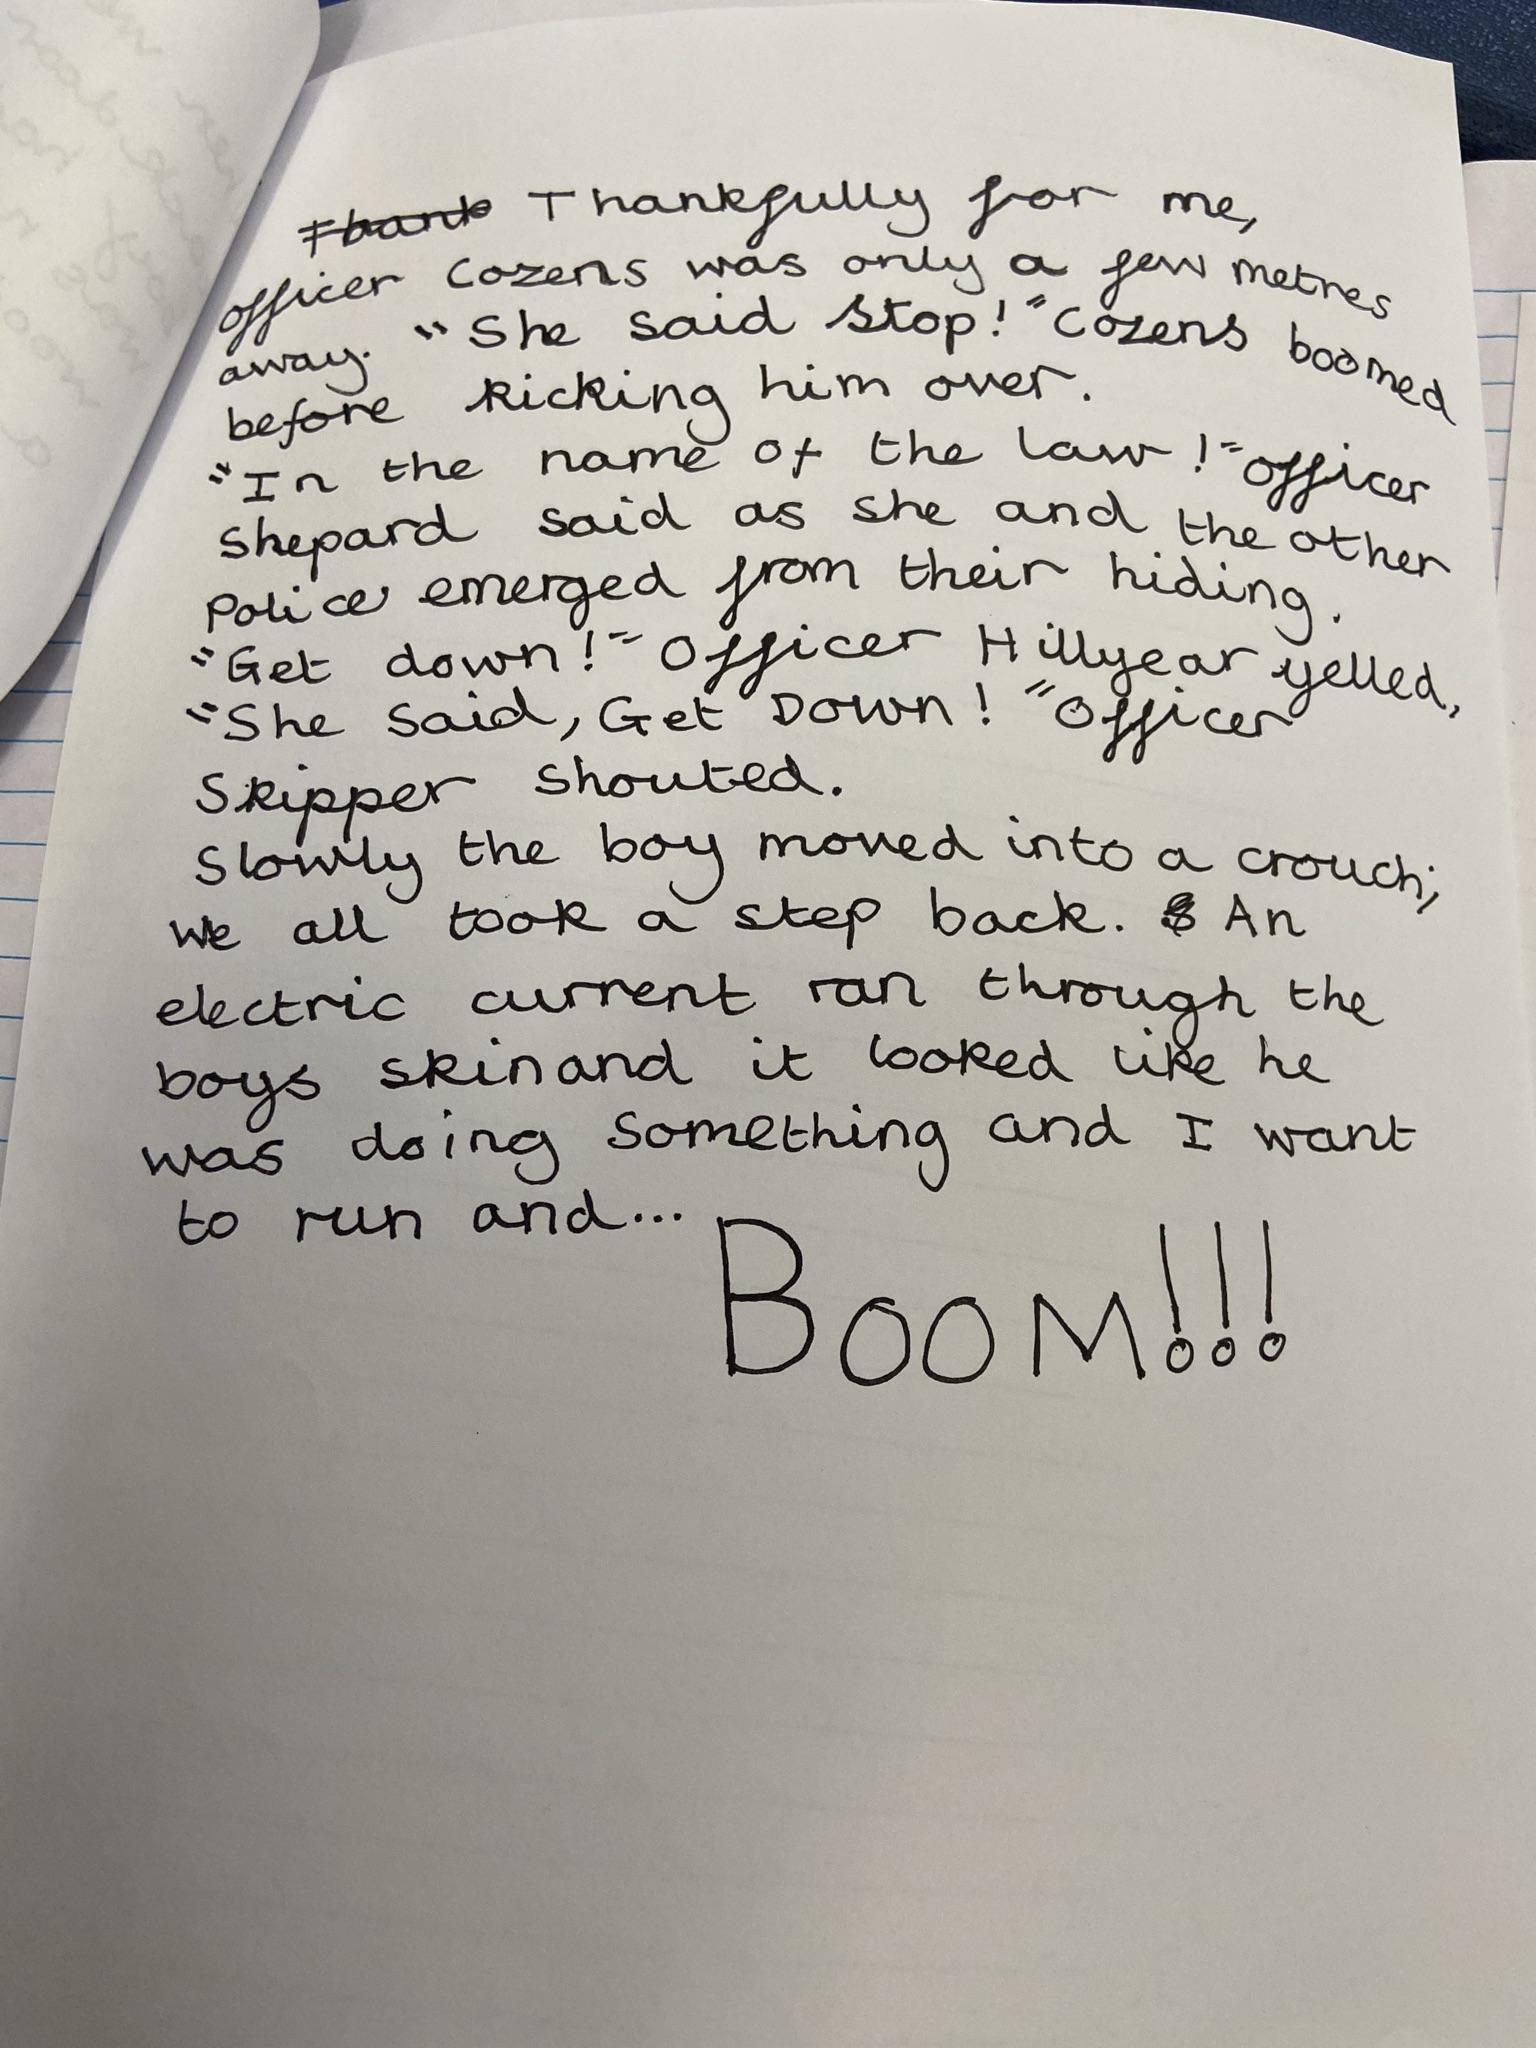 Thank Thankfully for me,
officer Cozens was only a few metres
away. "She said Stop!" Cozens boomed
before kicking him over.
"In the name of the law!" Officer
Shepard said as she and the other
Police emerged from their hiding.
"Get down!" Officer Hillyear yelled,
"She Said, Get Down!" Officer
Skipper shouted.
Slowly the boy moved into a crouch;
we all took a step back. An
electric current ran through the
boys skin and it looked like he
was doing something and I want
to run and...
BOOM!!!